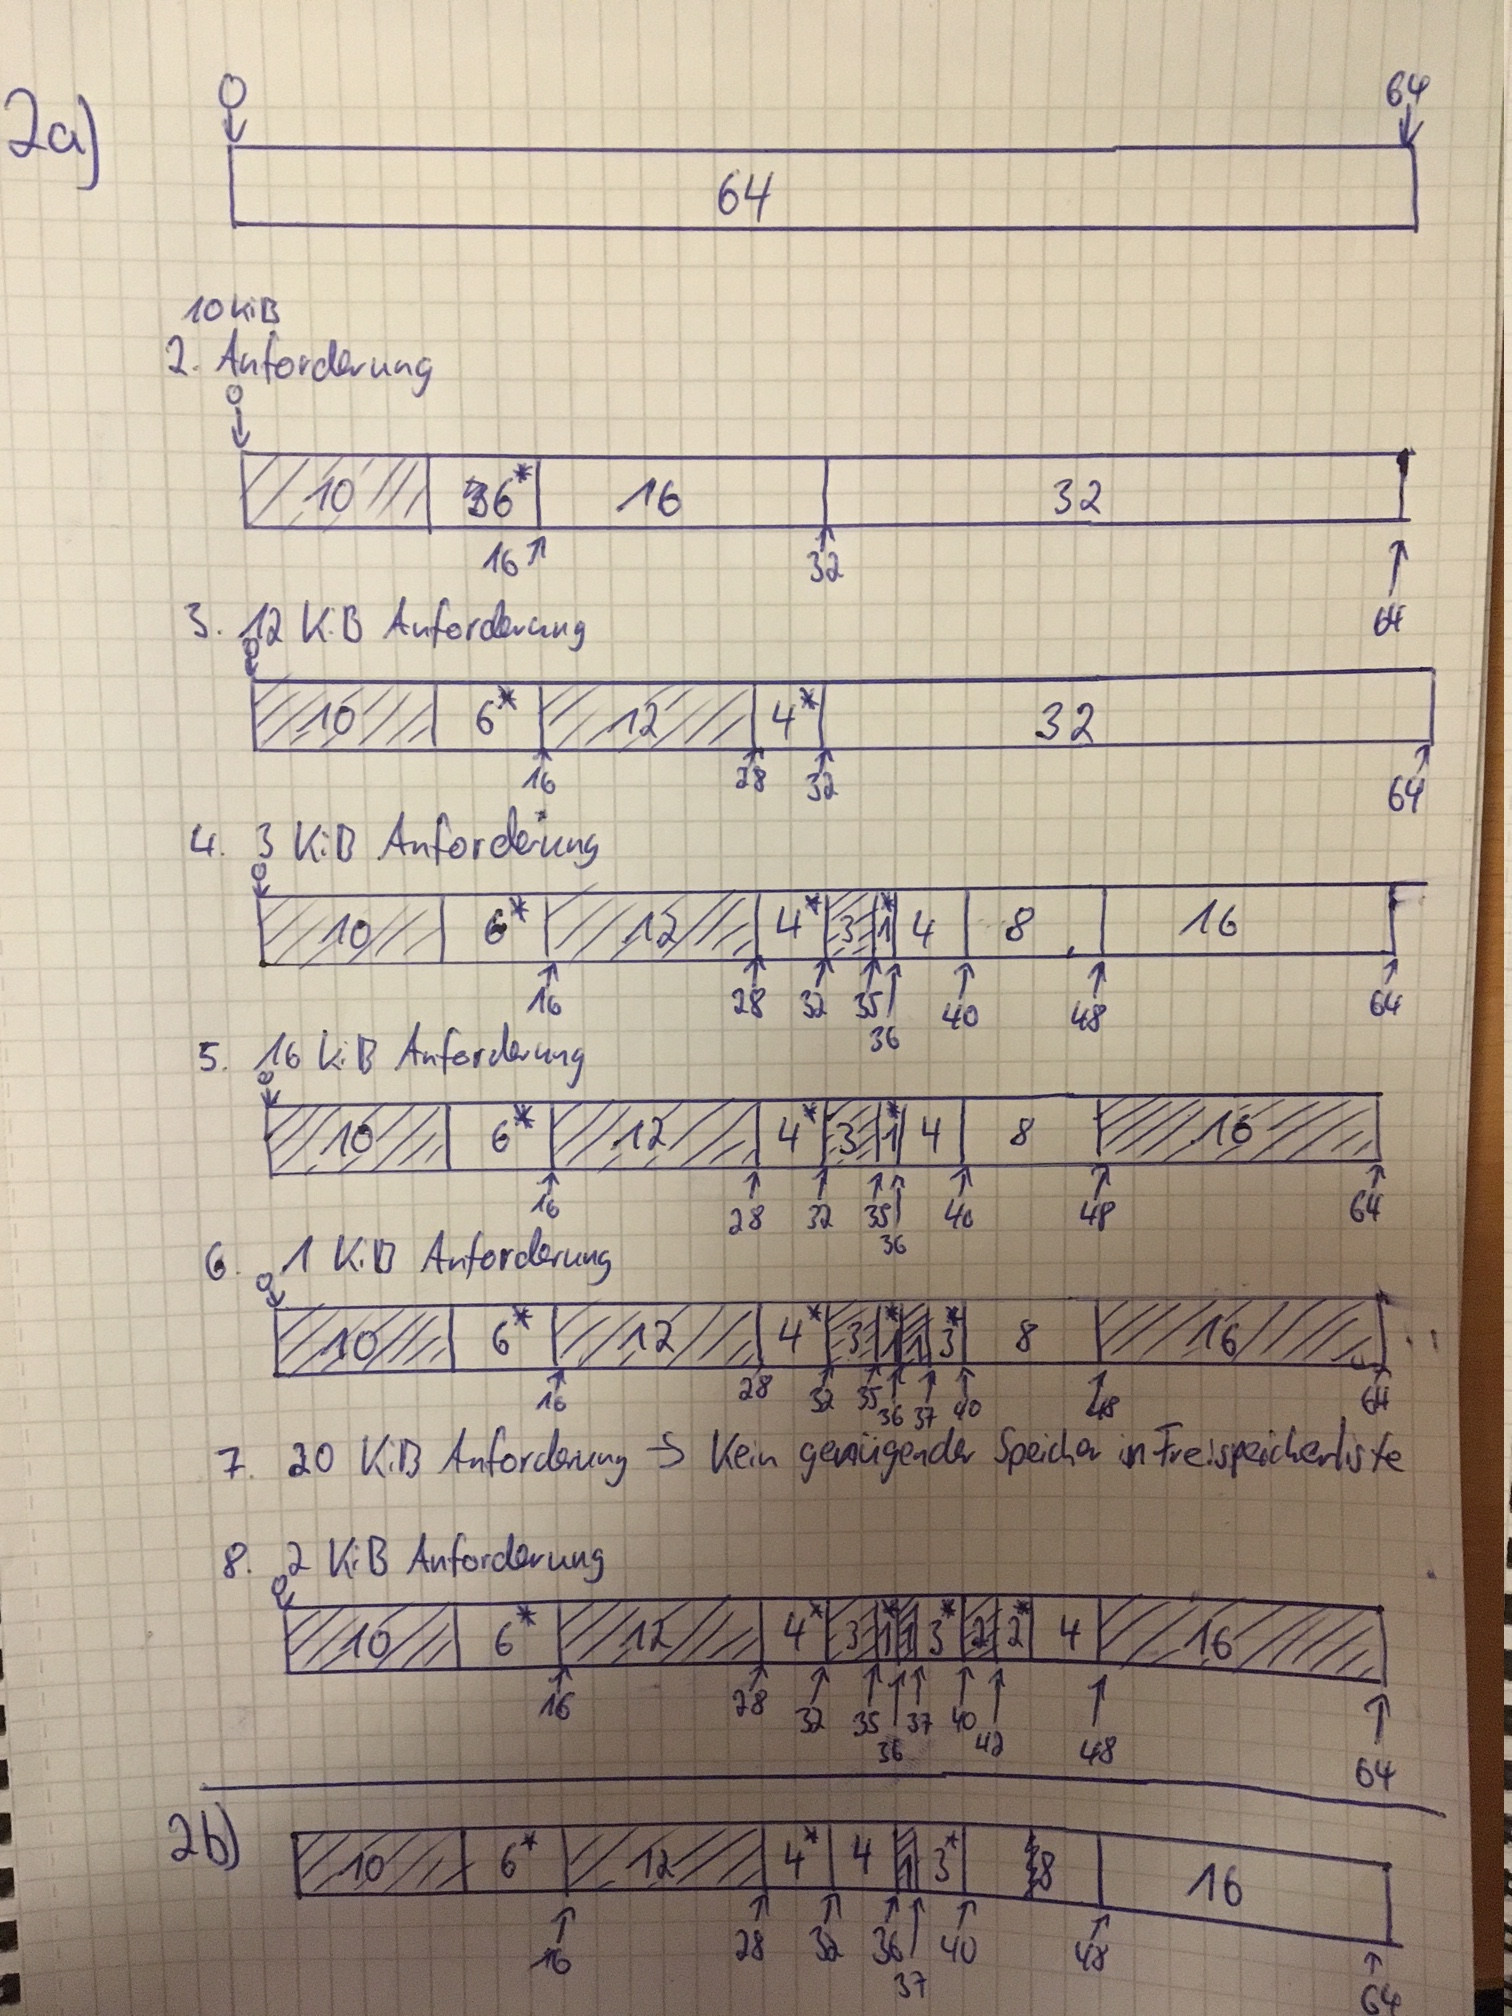 2a)
0 64
64
10 KiB
2. Anforderung
0
10 6* 16 32
16 32 64
3. 12 KiB Anforderung
0
10 6* 12 4* 32
16 28 32 64
4. 3 KiB Anforderung
0
10 6* 12 4* 3 1* 4 8 16
16 28 32 35 36 40 48 64
5. 16 KiB Anforderung
0
10 6* 12 4* 3 1* 4 8 16
16 28 32 35 36 40 48 64
6. 1 KiB Anforderung
0
10 6* 12 4* 3 1* 1 3* 8 16
16 28 32 35 36 37 40 48 64
7. 20 KiB Anforderung → Kein genügender Speicher in Freispeicherliste
8. 2 KiB Anforderung
0
10 6* 12 4* 3 1* 1 3* 2 2* 4 16
16 28 32 35 36 37 40 42 48 64
2b)
10 6* 12 4* 4 1 3* 8 16
16 28 32 36 37 40 48 64